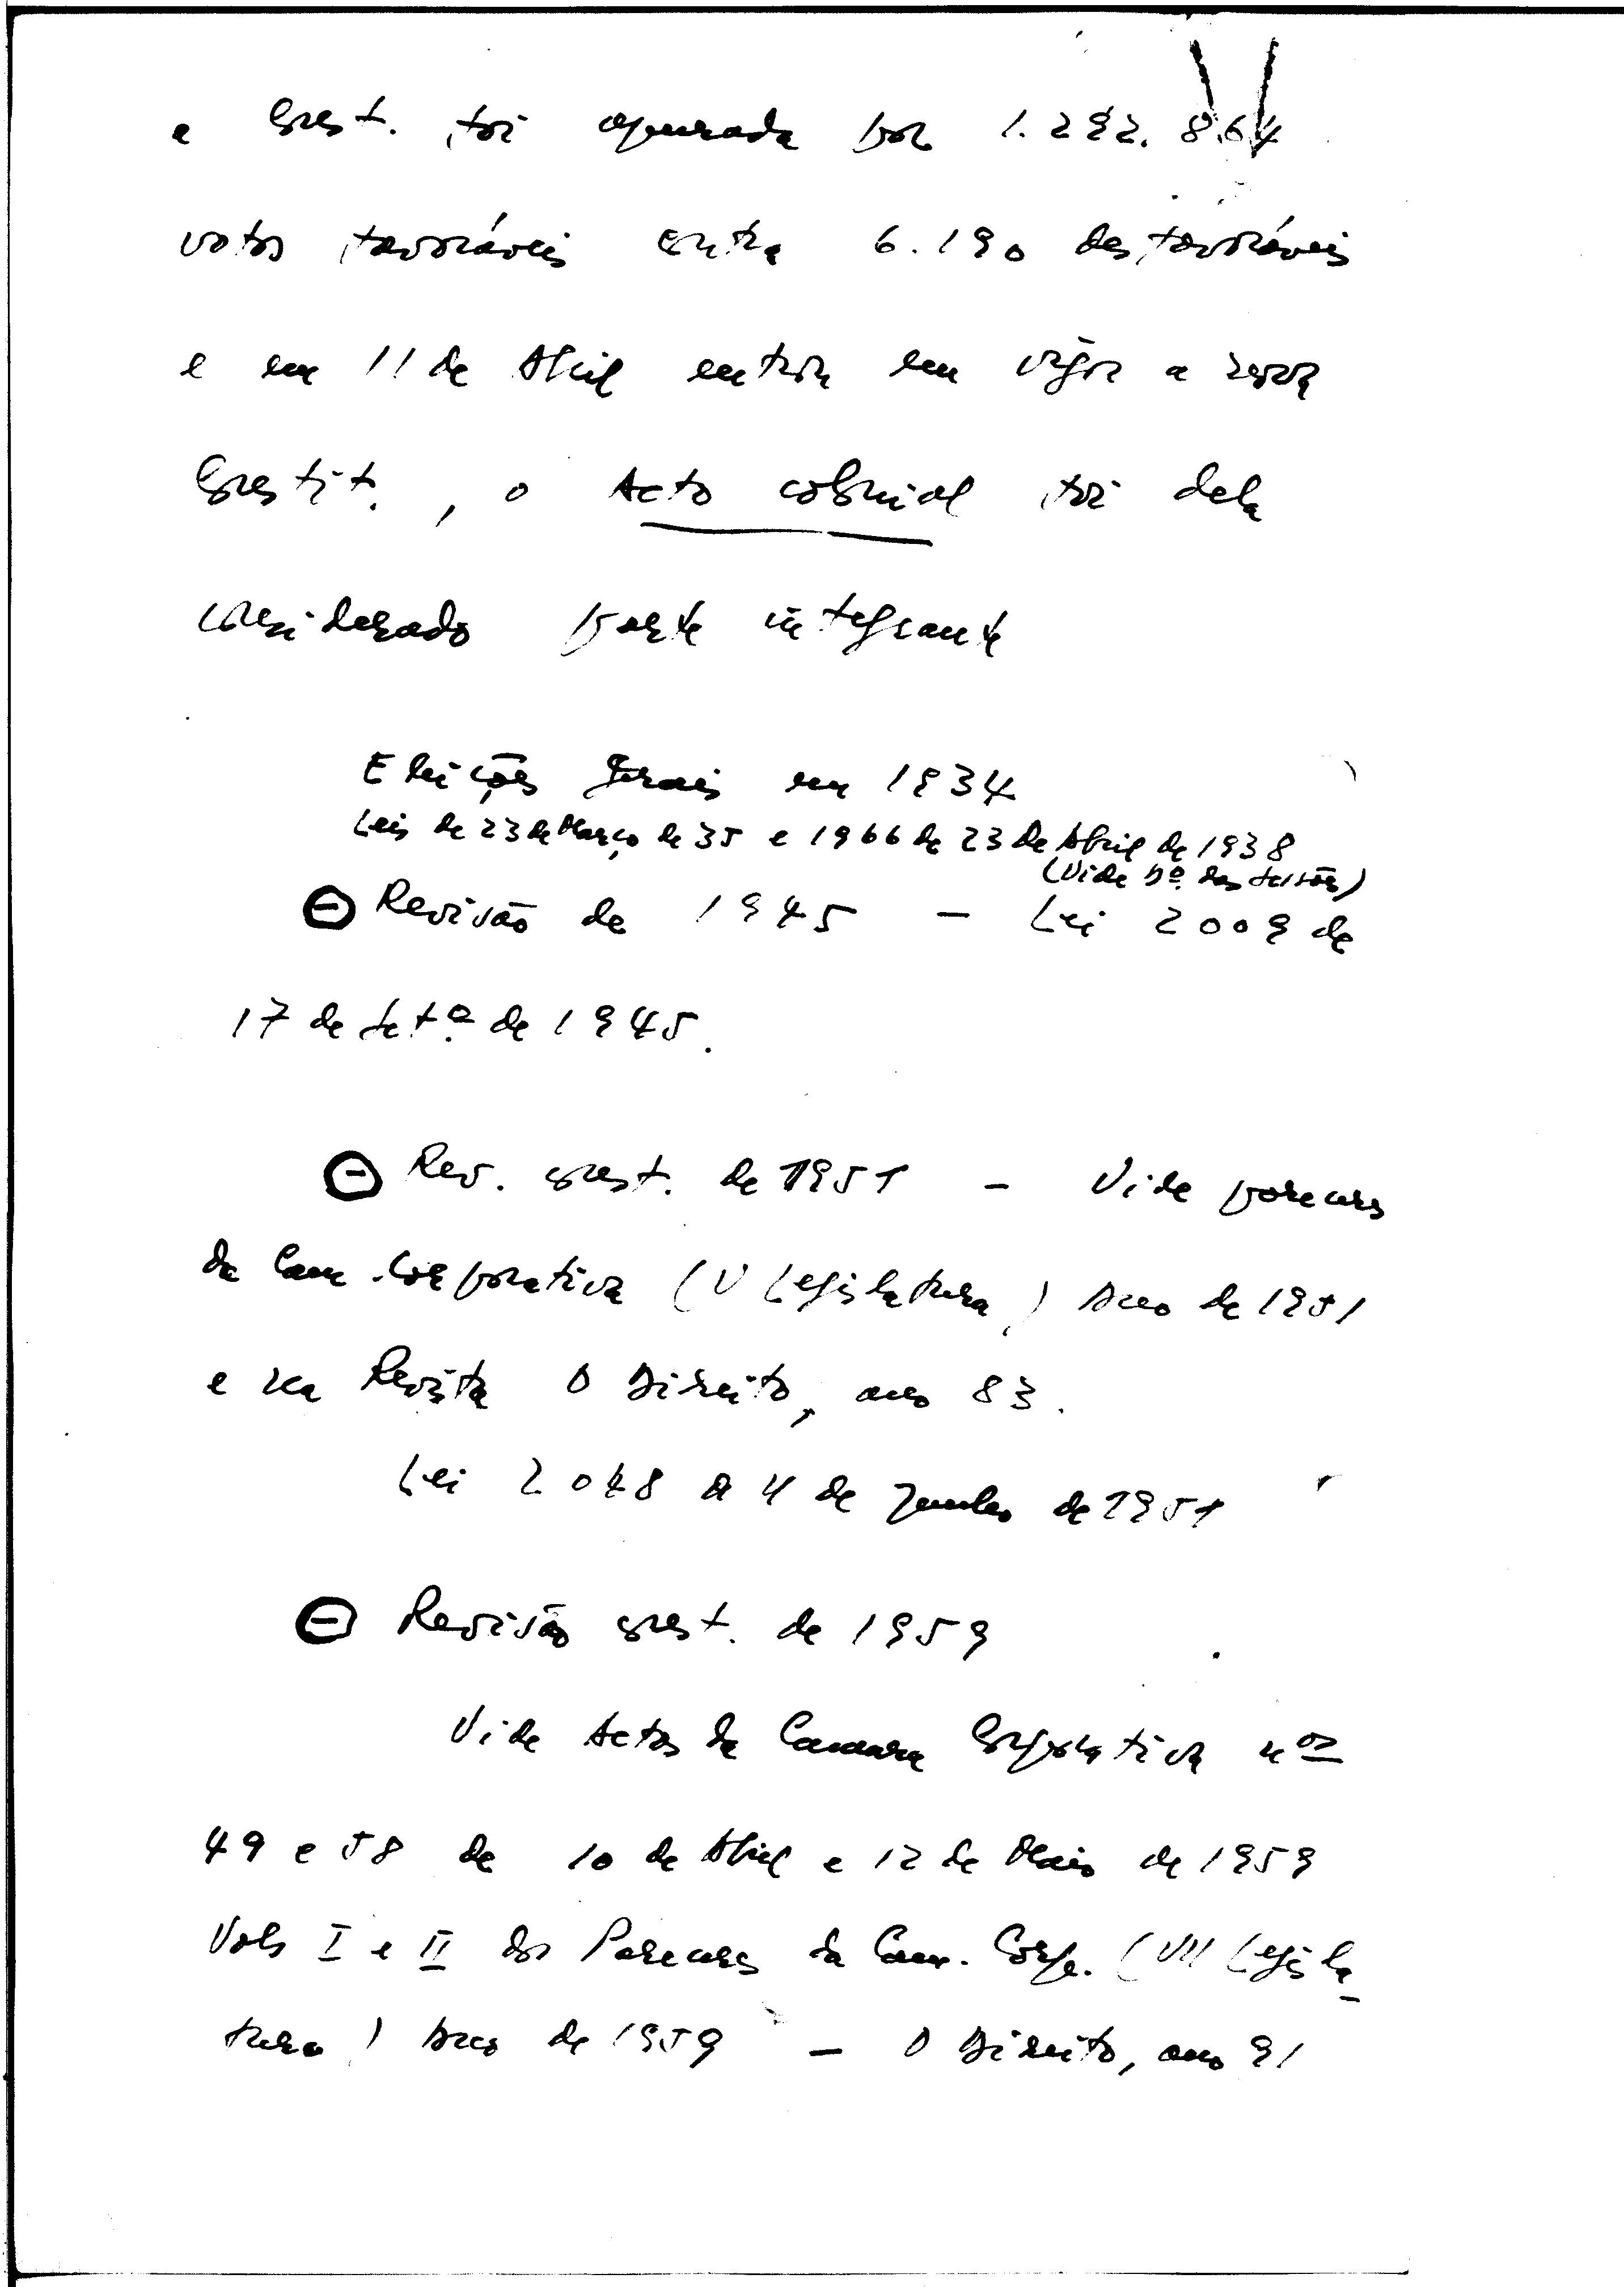 a Const. foi apurada por 1.292.864
votos favoráveis contra 6.190 desfavoráveis
e em 11 de Abril entrou em vigor a nova
Constit., o Acto colonial foi dela
considerado parte integrante
Eleições gerais em 1934
Leis de 23 de Março de 35 e 1966 de 23 de Abril de 1938
(Vide Dº. das Sessões)
⊖ Revisão de 1945 - Lei 2009 de
17 de Setº. de 1945.
⊖ Rev. const. de 1951 - Vide pareceres
da Cam. Corporativa (V Legislatura) Ano de 1951
e na Revista O Direito, ano 83.
Lei 2048 de 11 de Junho de 1951
⊖ Revisão const. de 1959
Vide Actas da Camara Corporativa nos
49 e 58 de 10 de Abril e 12 de Maio de 1959
Vols I e II dos Pareceres da Cam. Corp. (VII Legisla-
tura) Ano de 1959 - O Direito, ano 91